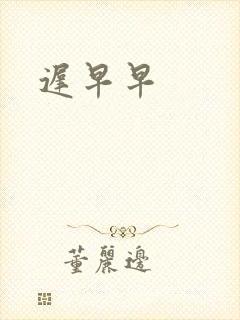 遲早早
董麗邊